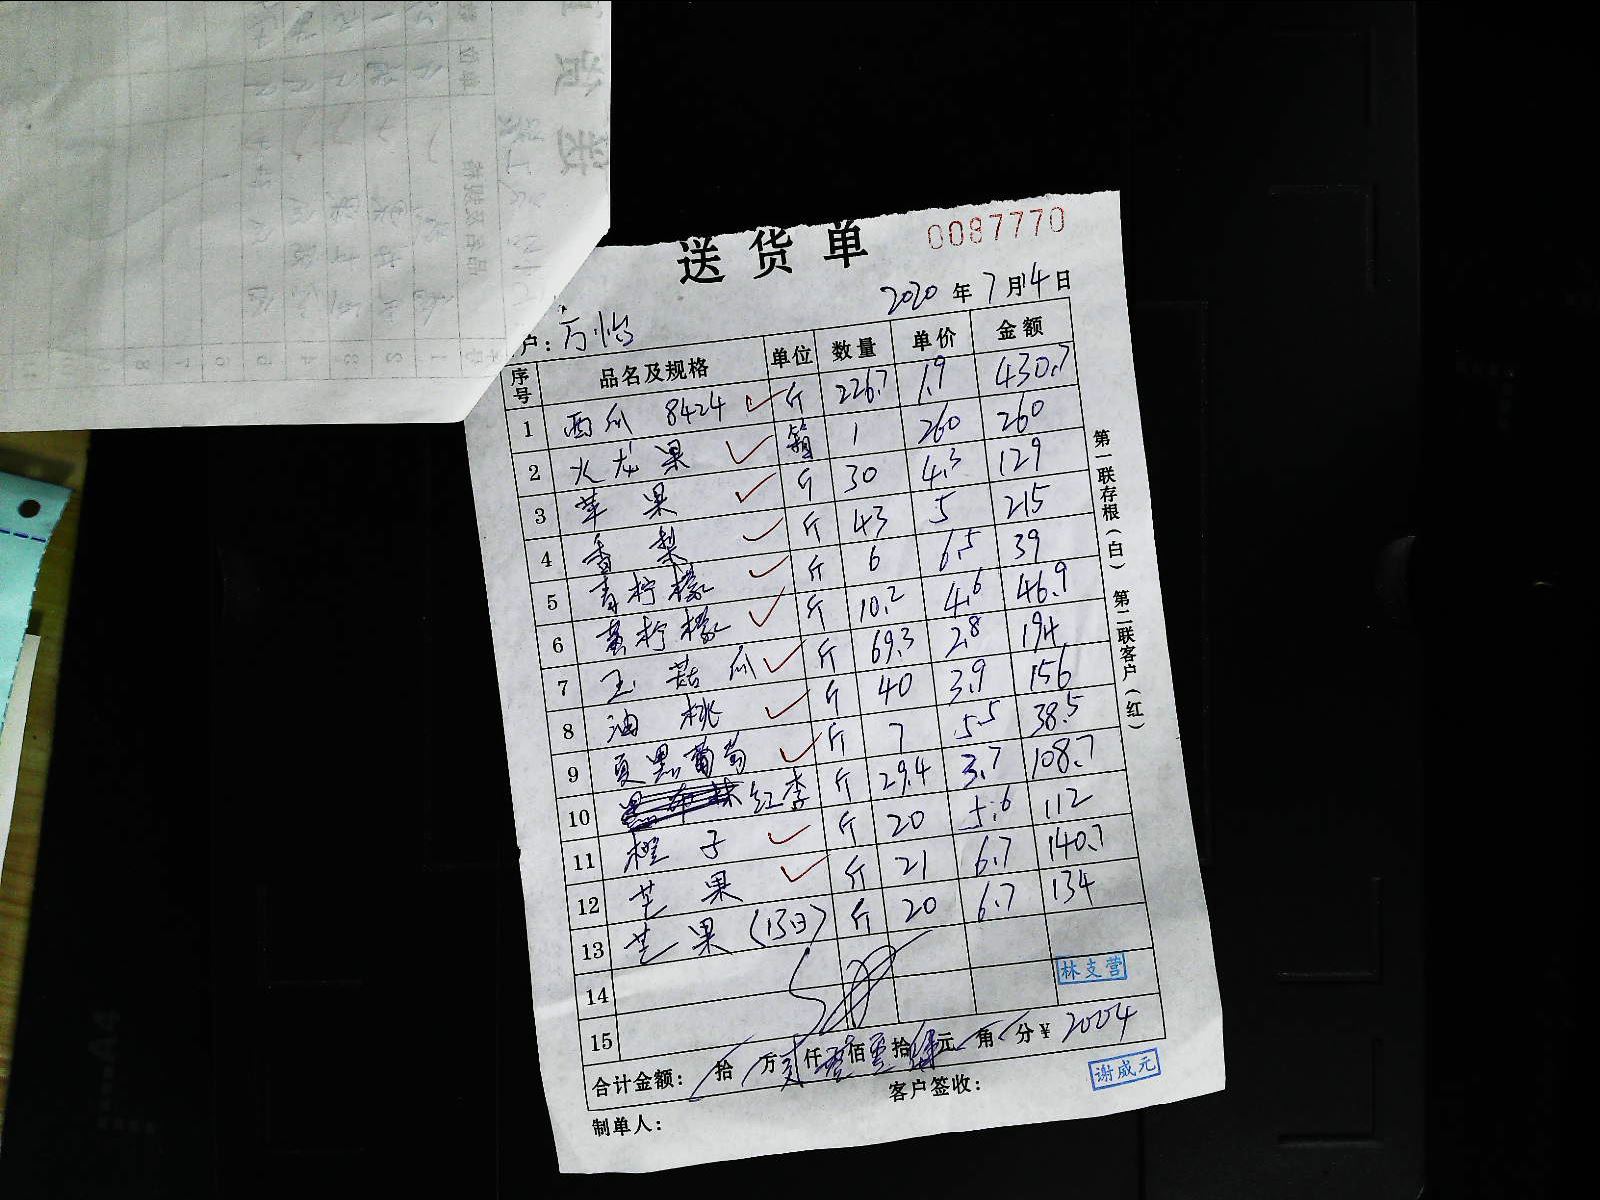 送货单 0087770
2020年7月14日
户：方怡
序号 品名及规格 单位 数量 单价 金额
1 西瓜 8424 斤 226.7 1.9 430.7
2 火龙果 箱 1 260 260
3 苹果 斤 30 4.3 129
4 香梨 斤 43 5 215
5 青柠檬 斤 6 6.5 39
6 黄柠檬 斤 10.2 4.6 46.9
7 玉菇瓜 斤 69.3 2.8 194
8 油桃 斤 40 3.9 156
9 夏黑葡萄 斤 7 5.5 38.5
10 红李 斤 29.4 3.7 108.7
11 橙子 斤 20 5.6 112
12 芒果 斤 21 6.7 140.7
13 芒果（13日） 斤 20 6.7 134
14
林支营
15
合计金额： 拾 万贰仟零佰零拾肆元 角 分¥ 2004
制单人： 客户签收： 谢威元
第一联存根（白） 第二联客户（红）